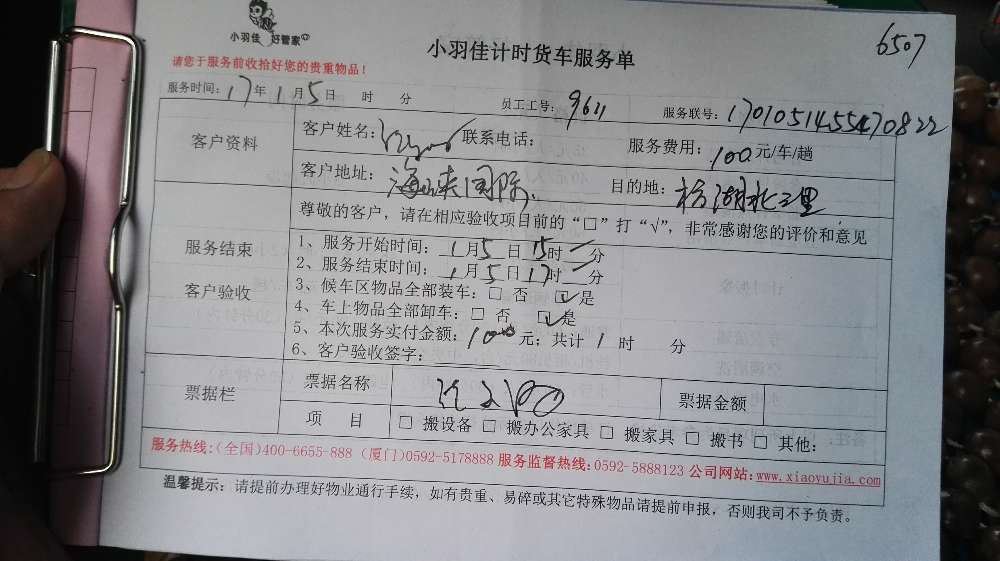 小羽佳 好管家
小羽佳计时货车服务单
6507
请您于服务前收拾好您的贵重物品！
服务时间：17年1月5日 时 分 员工工号：9611 服务联号：1701051455470822
客户资料
客户姓名： 联系电话： 服务费用：100元/车/趟
客户地址：海峡国际 目的地：枋湖北二里
尊敬的客户，请在相应验收项目前的“□”打“√”，非常感谢您的评价和意见
服务结束
客户验收
1、服务开始时间：1月5日15时 分
2、服务结束时间：1月5日17时 分
3、候车区物品全部装车：□ 否 ☑是
4、车上物品全部卸车：□ 否 ☑是
5、本次服务实付金额：100元；共计1时 分
6、客户验收签字：
票据栏
票据名称 票据金额
项 目 □ 搬设备 □ 搬办公家具 □ 搬家具 □ 搬书 □ 其他：
服务热线：(全国)400-6655-888 (厦门)0592-5178888 服务监督热线：0592-5888123 公司网站：www.xiaoyujia.com
温馨提示：请提前办理好物业通行手续，如有贵重、易碎或其它特殊物品请提前申报，否则我司不予负责。